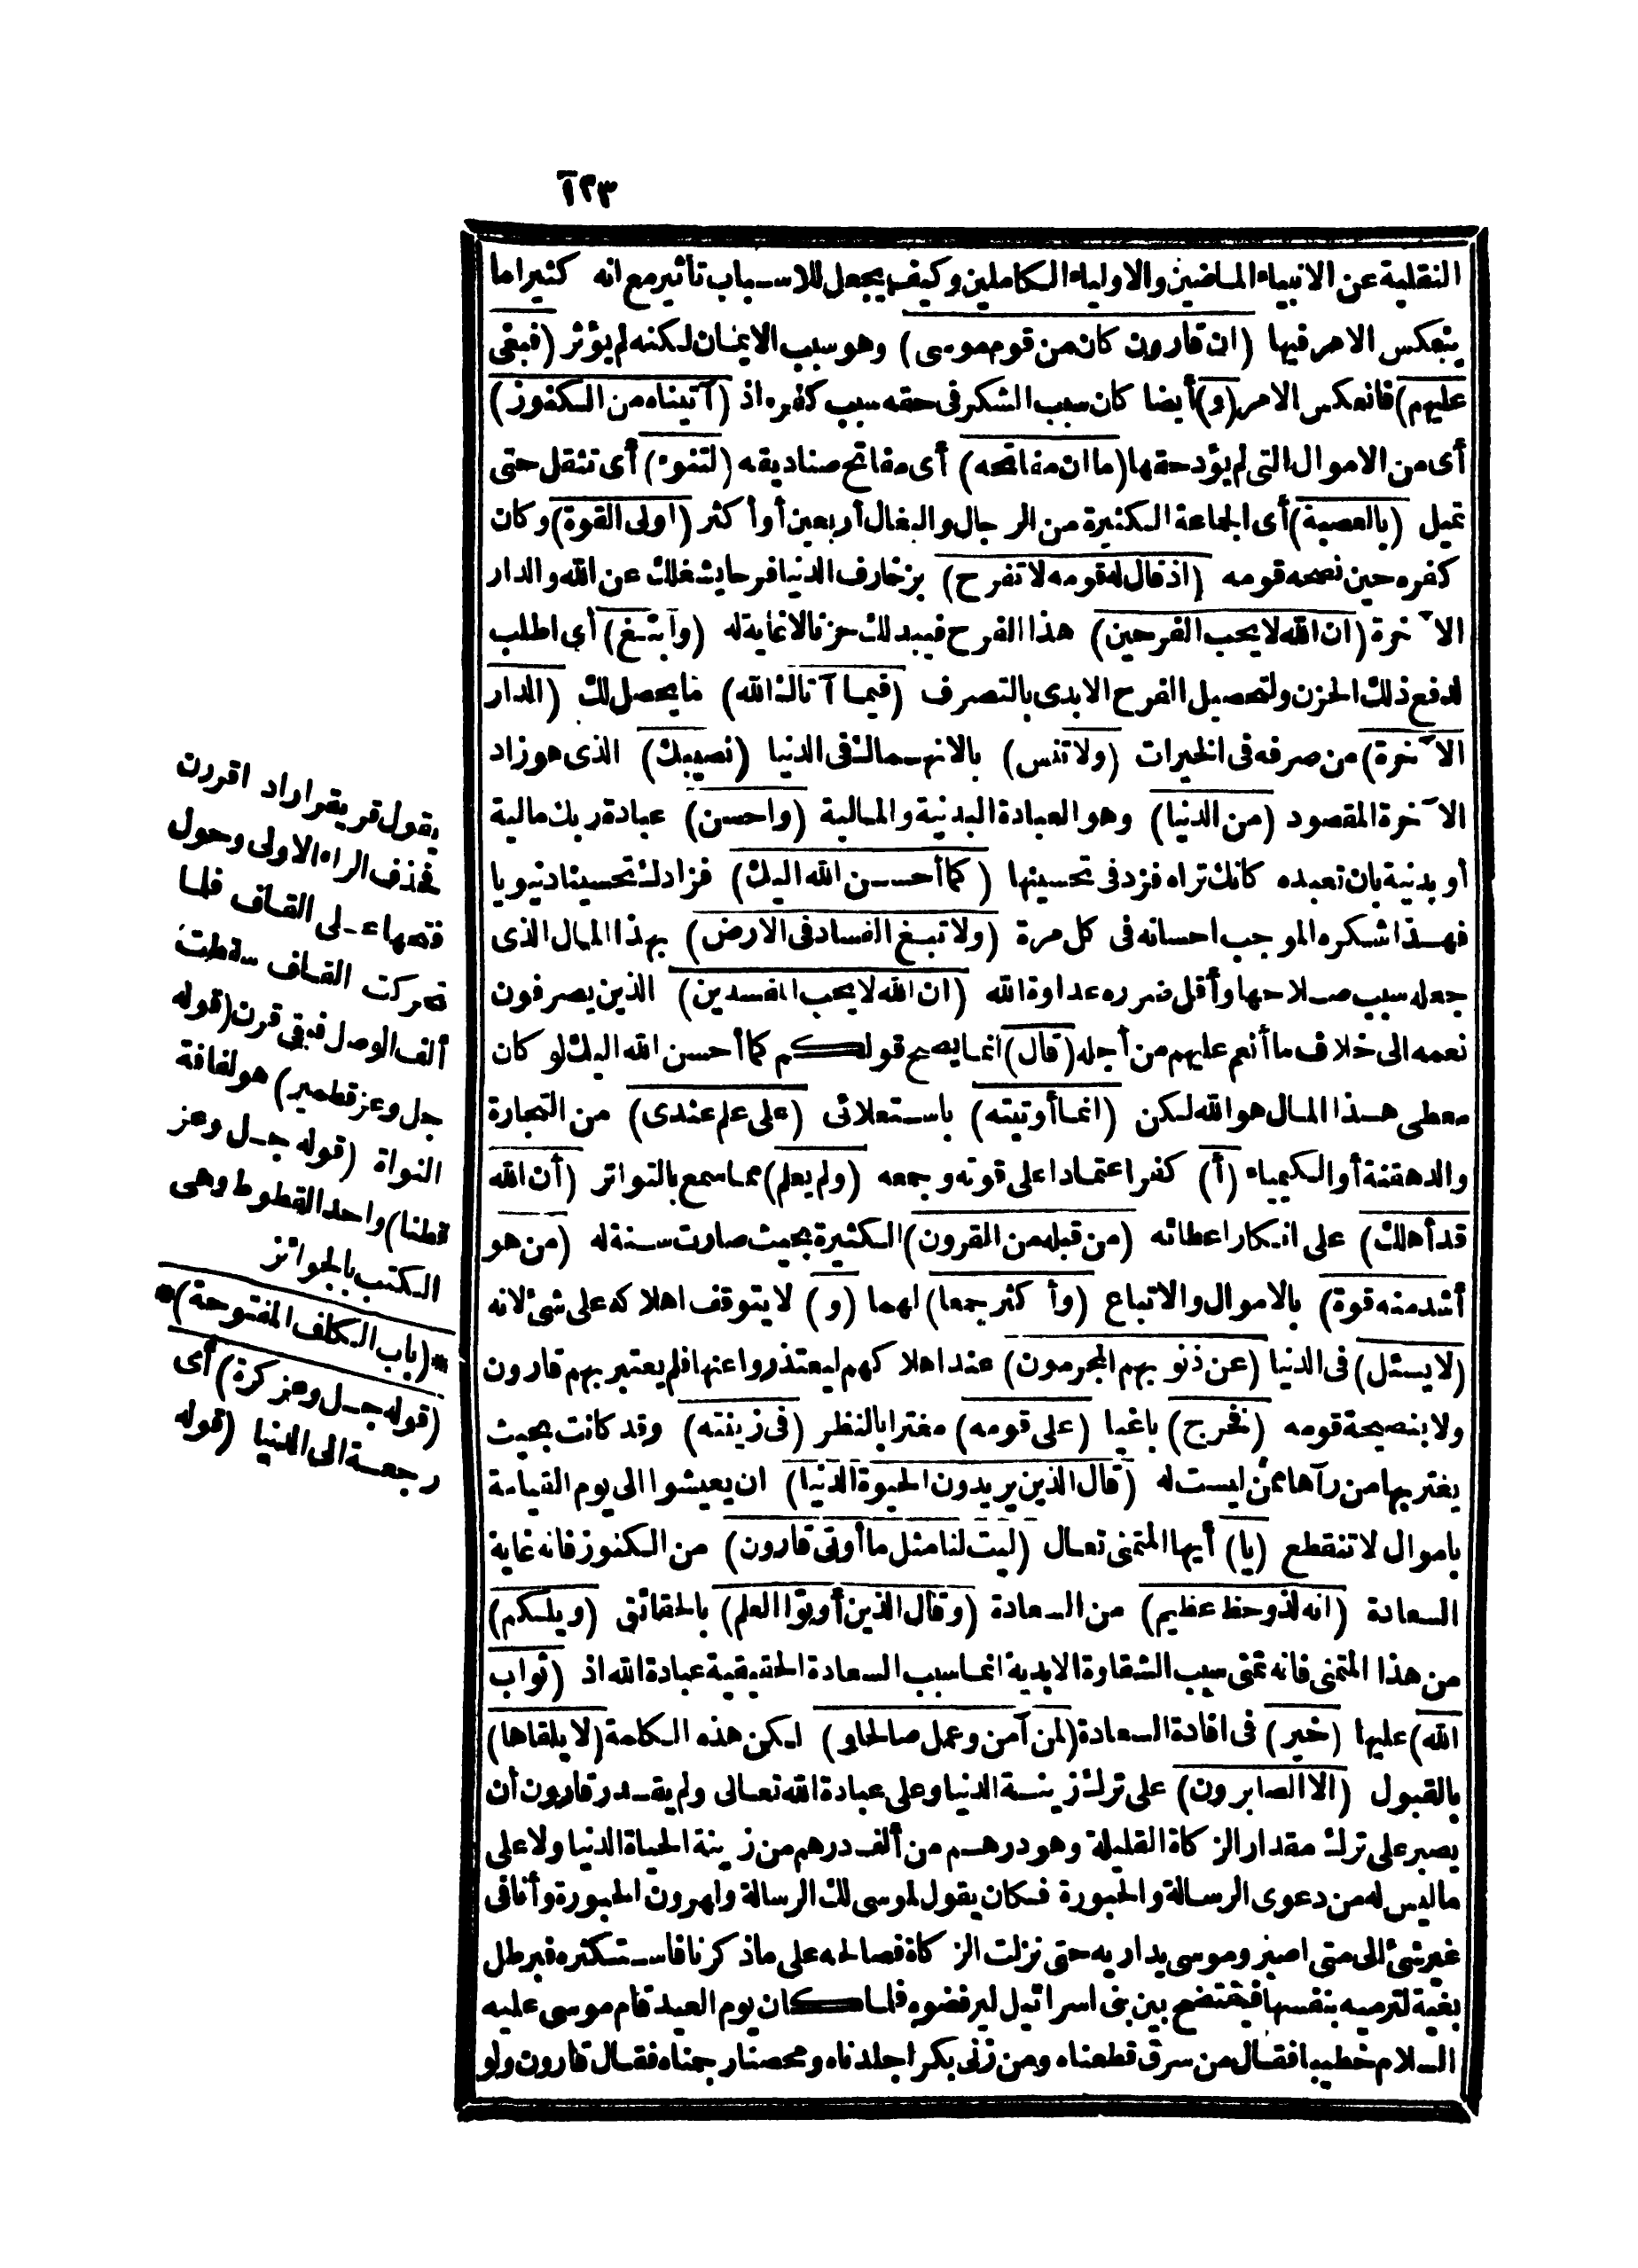 ١٢٣
النقلية عن الانبياء الماضين والاولياء الكاملين وكيف يجعل للاسباب تأثير مع انه كثيرا ما
ينعكس الامر فيها (ان قارون كان من قوم موسى) وهو سبب الايمان لكنه لم يؤثر (فبغى
عليهم) فانعكس الامر (و) أيضا كان سبب الشكر فى حقه سبب كفره اذ (آتيناه من الكنوز)
أى من الاموال التى لم يؤد حقها (ما ان مفاتحه) أى مفاتح صناديقه (لتنوء) أى تثقل حتى
تميل (بالعصبة) أى الجماعة الكثيرة من الرجال والبغال أربعين أو أكثر (اولى القوة) وكان
كفره حين نصحه قومه (اذ قال له قومه لا تفرح) بزخارف الدنيا فرحا يشغلك عن الله والدار
الآخرة (ان الله لا يحب الفرحين) هذا الفرح فيبدلك حزنا لا غاية له (وابتغ) أى اطلب
لدفع ذلك الحزن ولتحصيل الفرح الابدى بالتصرف (فيما آتاك الله) مما يحصل لك (الدار
الآخرة) من صرفه فى الخيرات (ولا تنس) بالانهماك فى الدنيا (نصيبك) الذى هو زاد
الآخرة المقصود (من الدنيا) وهو العبادة البدنية والمالية (واحسن) عبادة ربك مالية
أو بدنية بان تعبده كانك تراه فزد فى تحسينها (كما أحسن الله اليك) فزادك تحسينا دنيويا
فهذا شكره الموجب احسانه فى كل مرة (ولا تبغ الفساد فى الارض) بهذا المال الذى
جعله سبب صلاحها وأقل ضرره عداوة الله (ان الله لا يحب المفسدين) الذين يصرفون
نعمه الى خلاف ما أنعم عليهم من أجله (قال) انما يصح قولكم كما أحسن الله اليك لو كان
معطى هذا المال هو الله لكن (انما أوتيته) باستعلائى (على علم عندى) من التجارة
والدهقنة أو الكيمياء (أ) كفر اعتمادا على قوته وجمعه (ولم يعلم) مما سمع بالتواتر (أن الله
قد أهلك) على انكار اعطائه (من قبله من القرون) الكثيرة بحيث صارت سنة له (من هو
أشد منه قوة) بالاموال والاتباع (وأكثر جمعا) لهما (و) لا يتوقف اهلاكه على شئ لانه
(لا يسئل) فى الدنيا (عن ذنوبهم المجرمون) عند اهلاكهم ليعتذروا عنها فلم يعتبر بهم قارون
ولا بنصيحة قومه (فخرج) باغيا (على قومه) مغترا بالنظر (فى زينته) وقد كانت بحيث
يغتر بها من رآها ممن ليست له (قال الذين يريدون الحيوة الدنيا) ان يعيشوا الى يوم القيامة
باموال لا تنقطع (يا) أيها المتمنى تعال (ليت لنا مثل ما أوتى قارون) من الكنوز فانه غاية
السعادة (انه لذو حظ عظيم) من السعادة (وقال الذين أوتوا العلم) بالحقائق (ويلكم)
من هذا المتمنى فانه تمنى سبب الشقاوة الابدية انما سبب السعادة الحقيقية عبادة الله اذ (ثواب
الله) عليها (خير) فى افادة السعادة (لمن آمن وعمل صالحا و) لكن هذه الكلمة (لا يلقاها)
بالقبول (الا الصابرون) على ترك زينة الدنيا وعلى عبادة الله تعالى ولم يقدر قارون أن
يصبر على ترك مقدار الزكاة القليلة وهو درهم من ألف درهم من زينة الحياة الدنيا ولا على
ما ليس له من دعوى الرسالة والحبورة فكان يقول لموسى لك الرسالة ولهرون الحبورة وأنا فى
غير شئ الى متى اصبر وموسى يداريه حتى نزلت الزكاة فصالحه على ما ذكرنا فاستكثره فبرطل
بغية لترميه بنفسها فيفتضح بين بنى اسرائيل ليرفضوه فلما كان يوم العيد قام موسى عليه
السلام خطيبا فقال من سرق قطعناه ومن زنى بكرا جلدناه ومحصنا رجمناه فقال قارون ولو
يقول قر يقر اراد اقررن
فحذف الراء الاولى وحول
فتحها على القاف فلما
تحركت القاف سقطت
ألف الوصل فبقى قرن (قوله
جل وعز قطمير) هو لفافة
النواة (قوله جل وعز
قطنا) واحد القطوط وهى
الكتب بالجوائز
*(باب الكاف المفتوحة)*
(قوله جل وعز كرة) أى
رجعة الى الدنيا (قوله